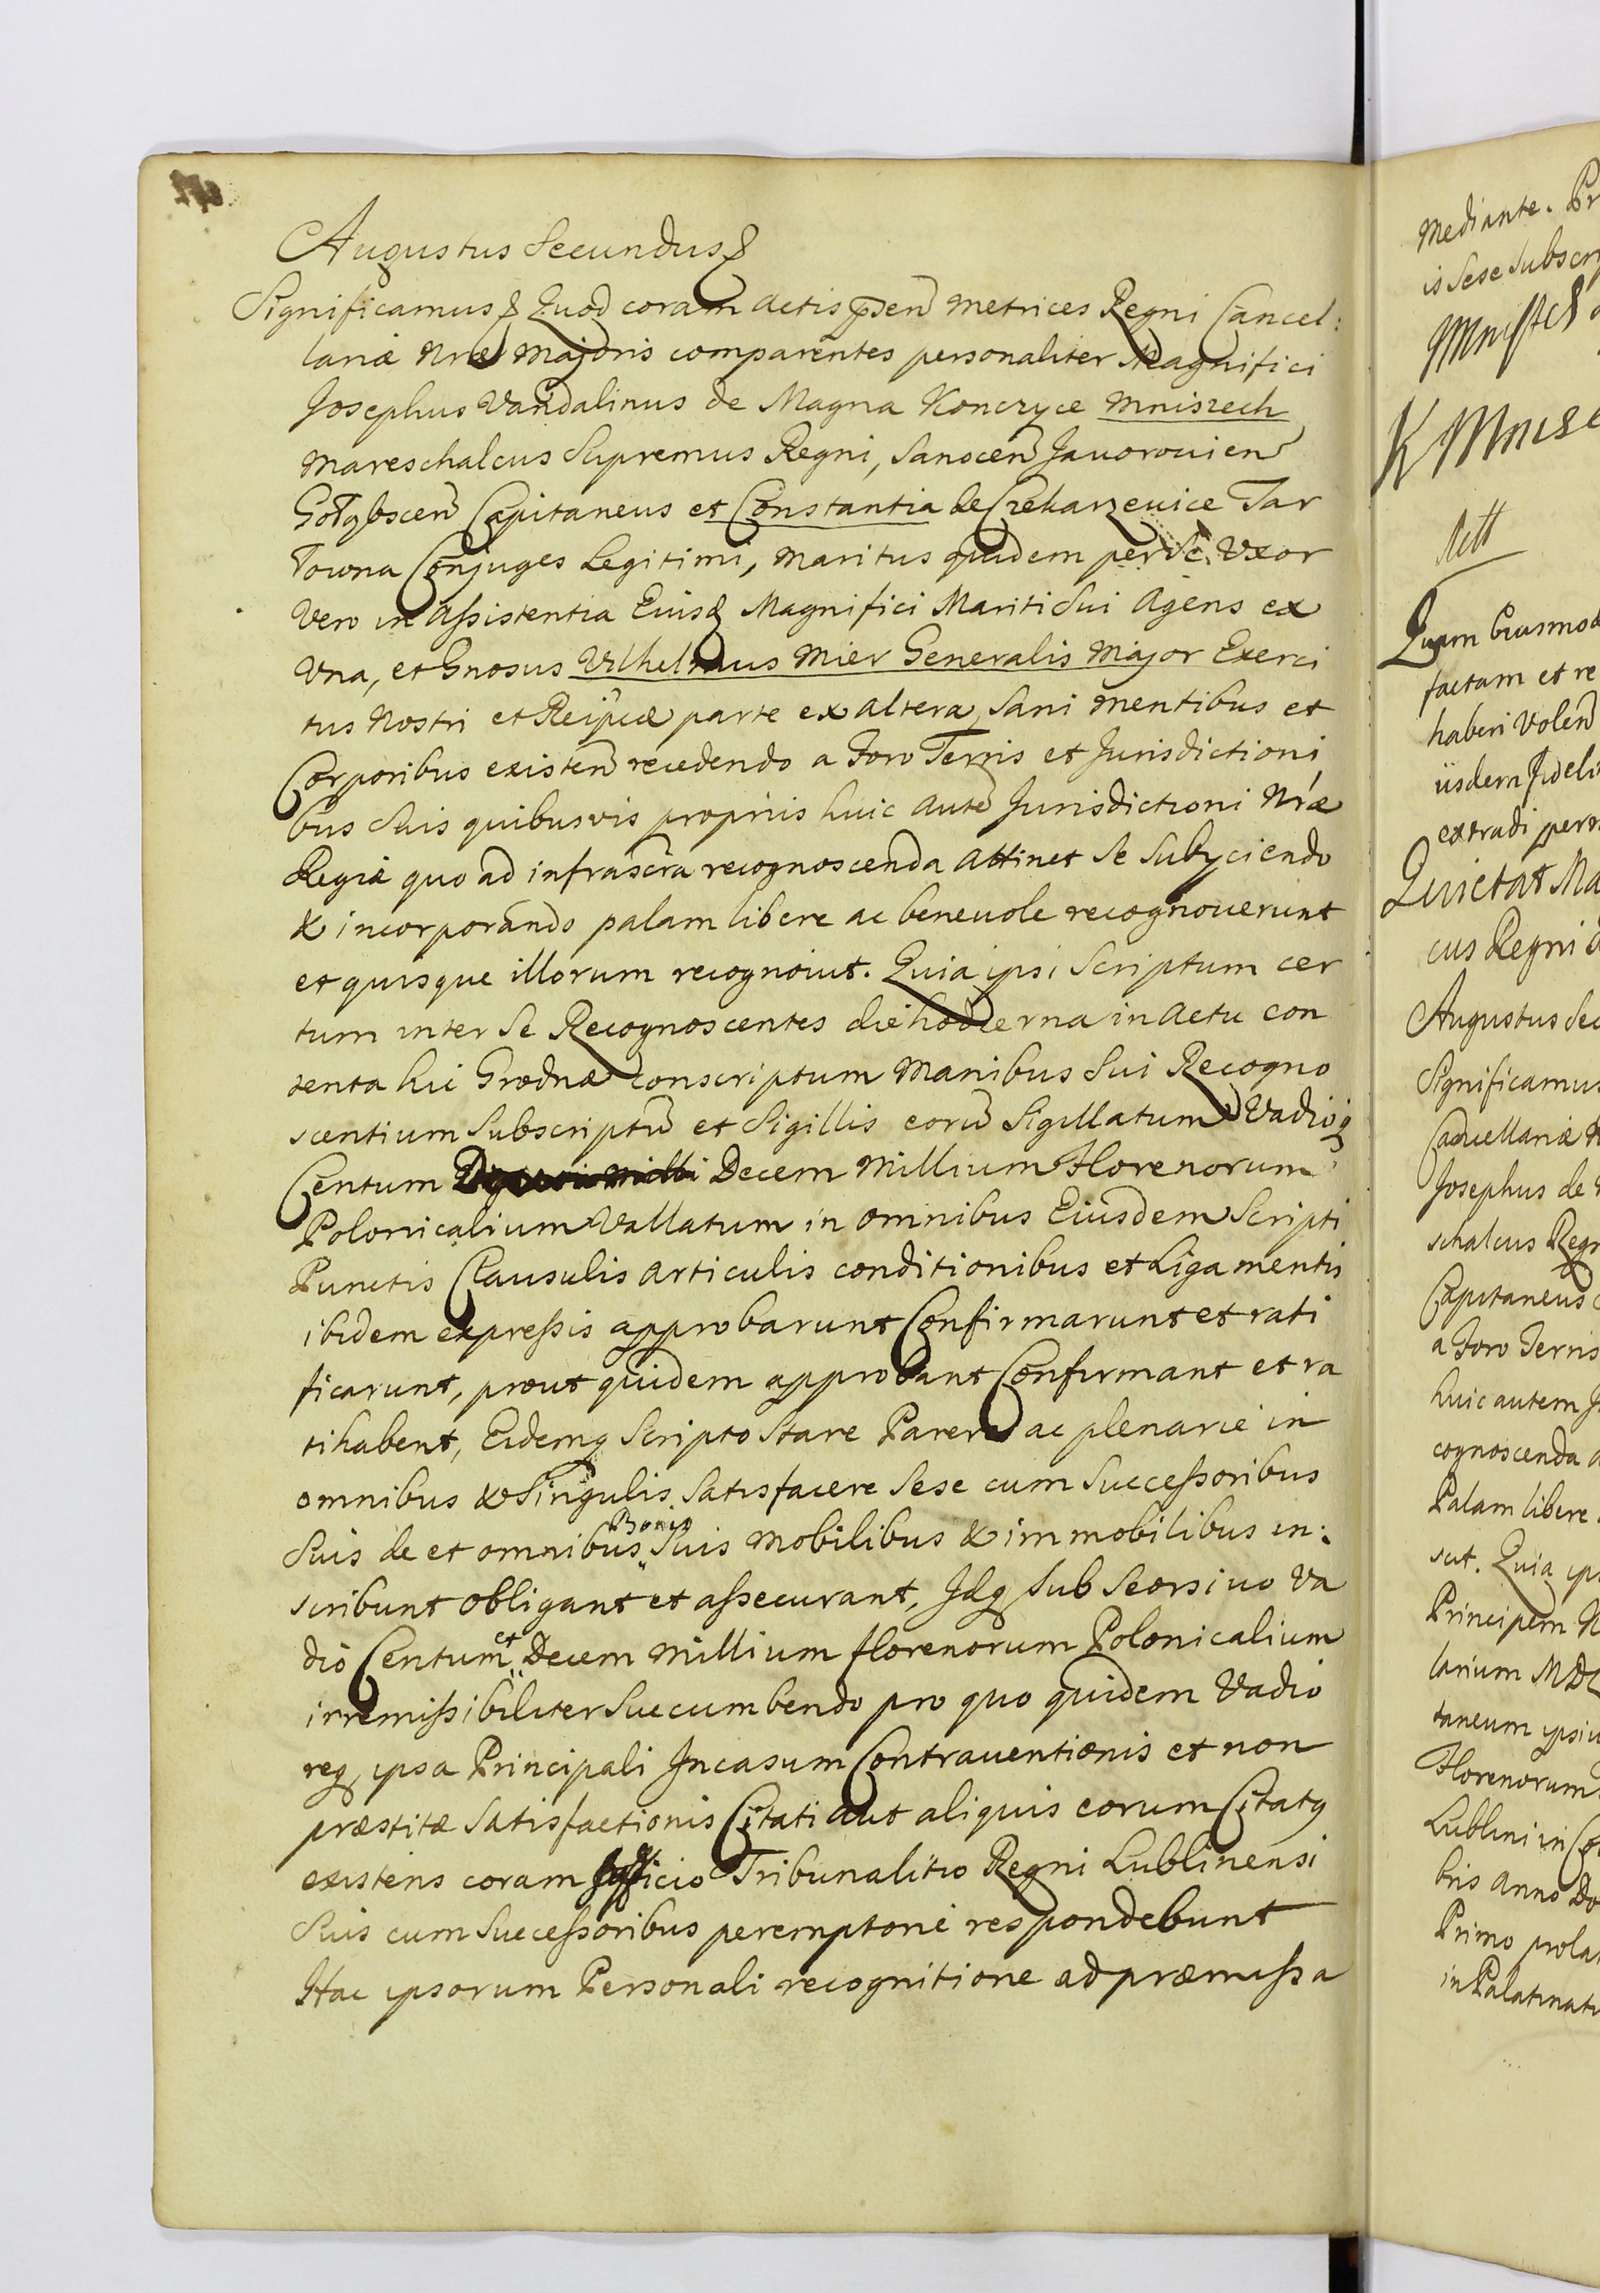 Augustus Secundus
Significamus Quod coram actis pnsen Metrices Regni Cancel:
lariæ Nræ Majoris comparentes personaliter Magnifici
Josephus Vandalinus de Magna Konczyce Mniszech
Mareschalcus Supremus Regni, Sanocen Javorovien
Gołębscen Capitaneus et Constantia de Czekarzevice Tar
łowna Conjuges Legitimi, Maritus quidem per se Uxor
Vero in Assistentia Eiusq Magnifici Mariti Sui Agens ex
Una, et Gnosus Vilhelmus Mier Generalis Major Exerci
tus Nostri et Reipcæ parte ex altera, Sani mentibus et
Corporibus existen recedendo a Foro Terris et Jurisdictioni
bus Suis quibusvis propriis huic aute Jurisdictioni Nræ
Regiæ quo ad infrascra recognoscenda attinet Se Subyciendo
& incorporando palam libere ac benevole recognoverunt
et quisque illorum recognovit. Quia ipsi Scriptum cer
tum inter Se Recognoscentes die hodierna in actu con
tenta hic Grodnæ conscriptum Manibus Sui Recogno
scentium Subscriptu et Sigillis eoru Sigillatum Vadioq
Centum Decem Millium Florenorum
Polonicalium Vallatum in omnibus Eiusdem Scripti
Punctis Clausulis articulis conditionibus et Ligamentis
ibidem expressis approbarunt Confirmarunt et rati
ficarunt, prout quidem approbant Confirmant et ra
tihabent, Eidemq Scripto Stare Parere ac plenarie in
omnibus & Singulis Satisfacere Sese cum Successoribus
Suis de et omnibus Bonis Suis Mobilibus & immobilibus in:
scribunt obligant et assecurant, Idq Sub Seorsivo Va
dio Centum et Decem Millium florenorum Polonicalium
irremissibiliter Succumbendo pro quo quidem Vadio
req ipsa Principali Incasum Contraventionis et non
præstitæ Satisfactionis Citati aut aliquis eorum Citatq
existens coram Officio Tribunalitio Regni Lublinensi
Suis cum Successoribus peremptorie respondebunt
Hac ipsorum Personali recognitione ad præmissa
mediante. Pr
is Sese Subscri
Mniszch
K Mnisz
Quam Eiusmod
factam et re
haberi Volen
iisdem fideli
extradi perm
Quietat Ma
cus Regni
Augustus Sec
Significamus
Cancellariæ N
Josephus de
schalcus Regn
Capitaneus
a Foro Terris
huic autem J
cognoscenda a
Palam libere
vit. Quia ips
Principem N
larium MDL
taneum ipsiu
Florenorum
Lublini in Co
bris anno Do
Primo prola
in Palatinatu